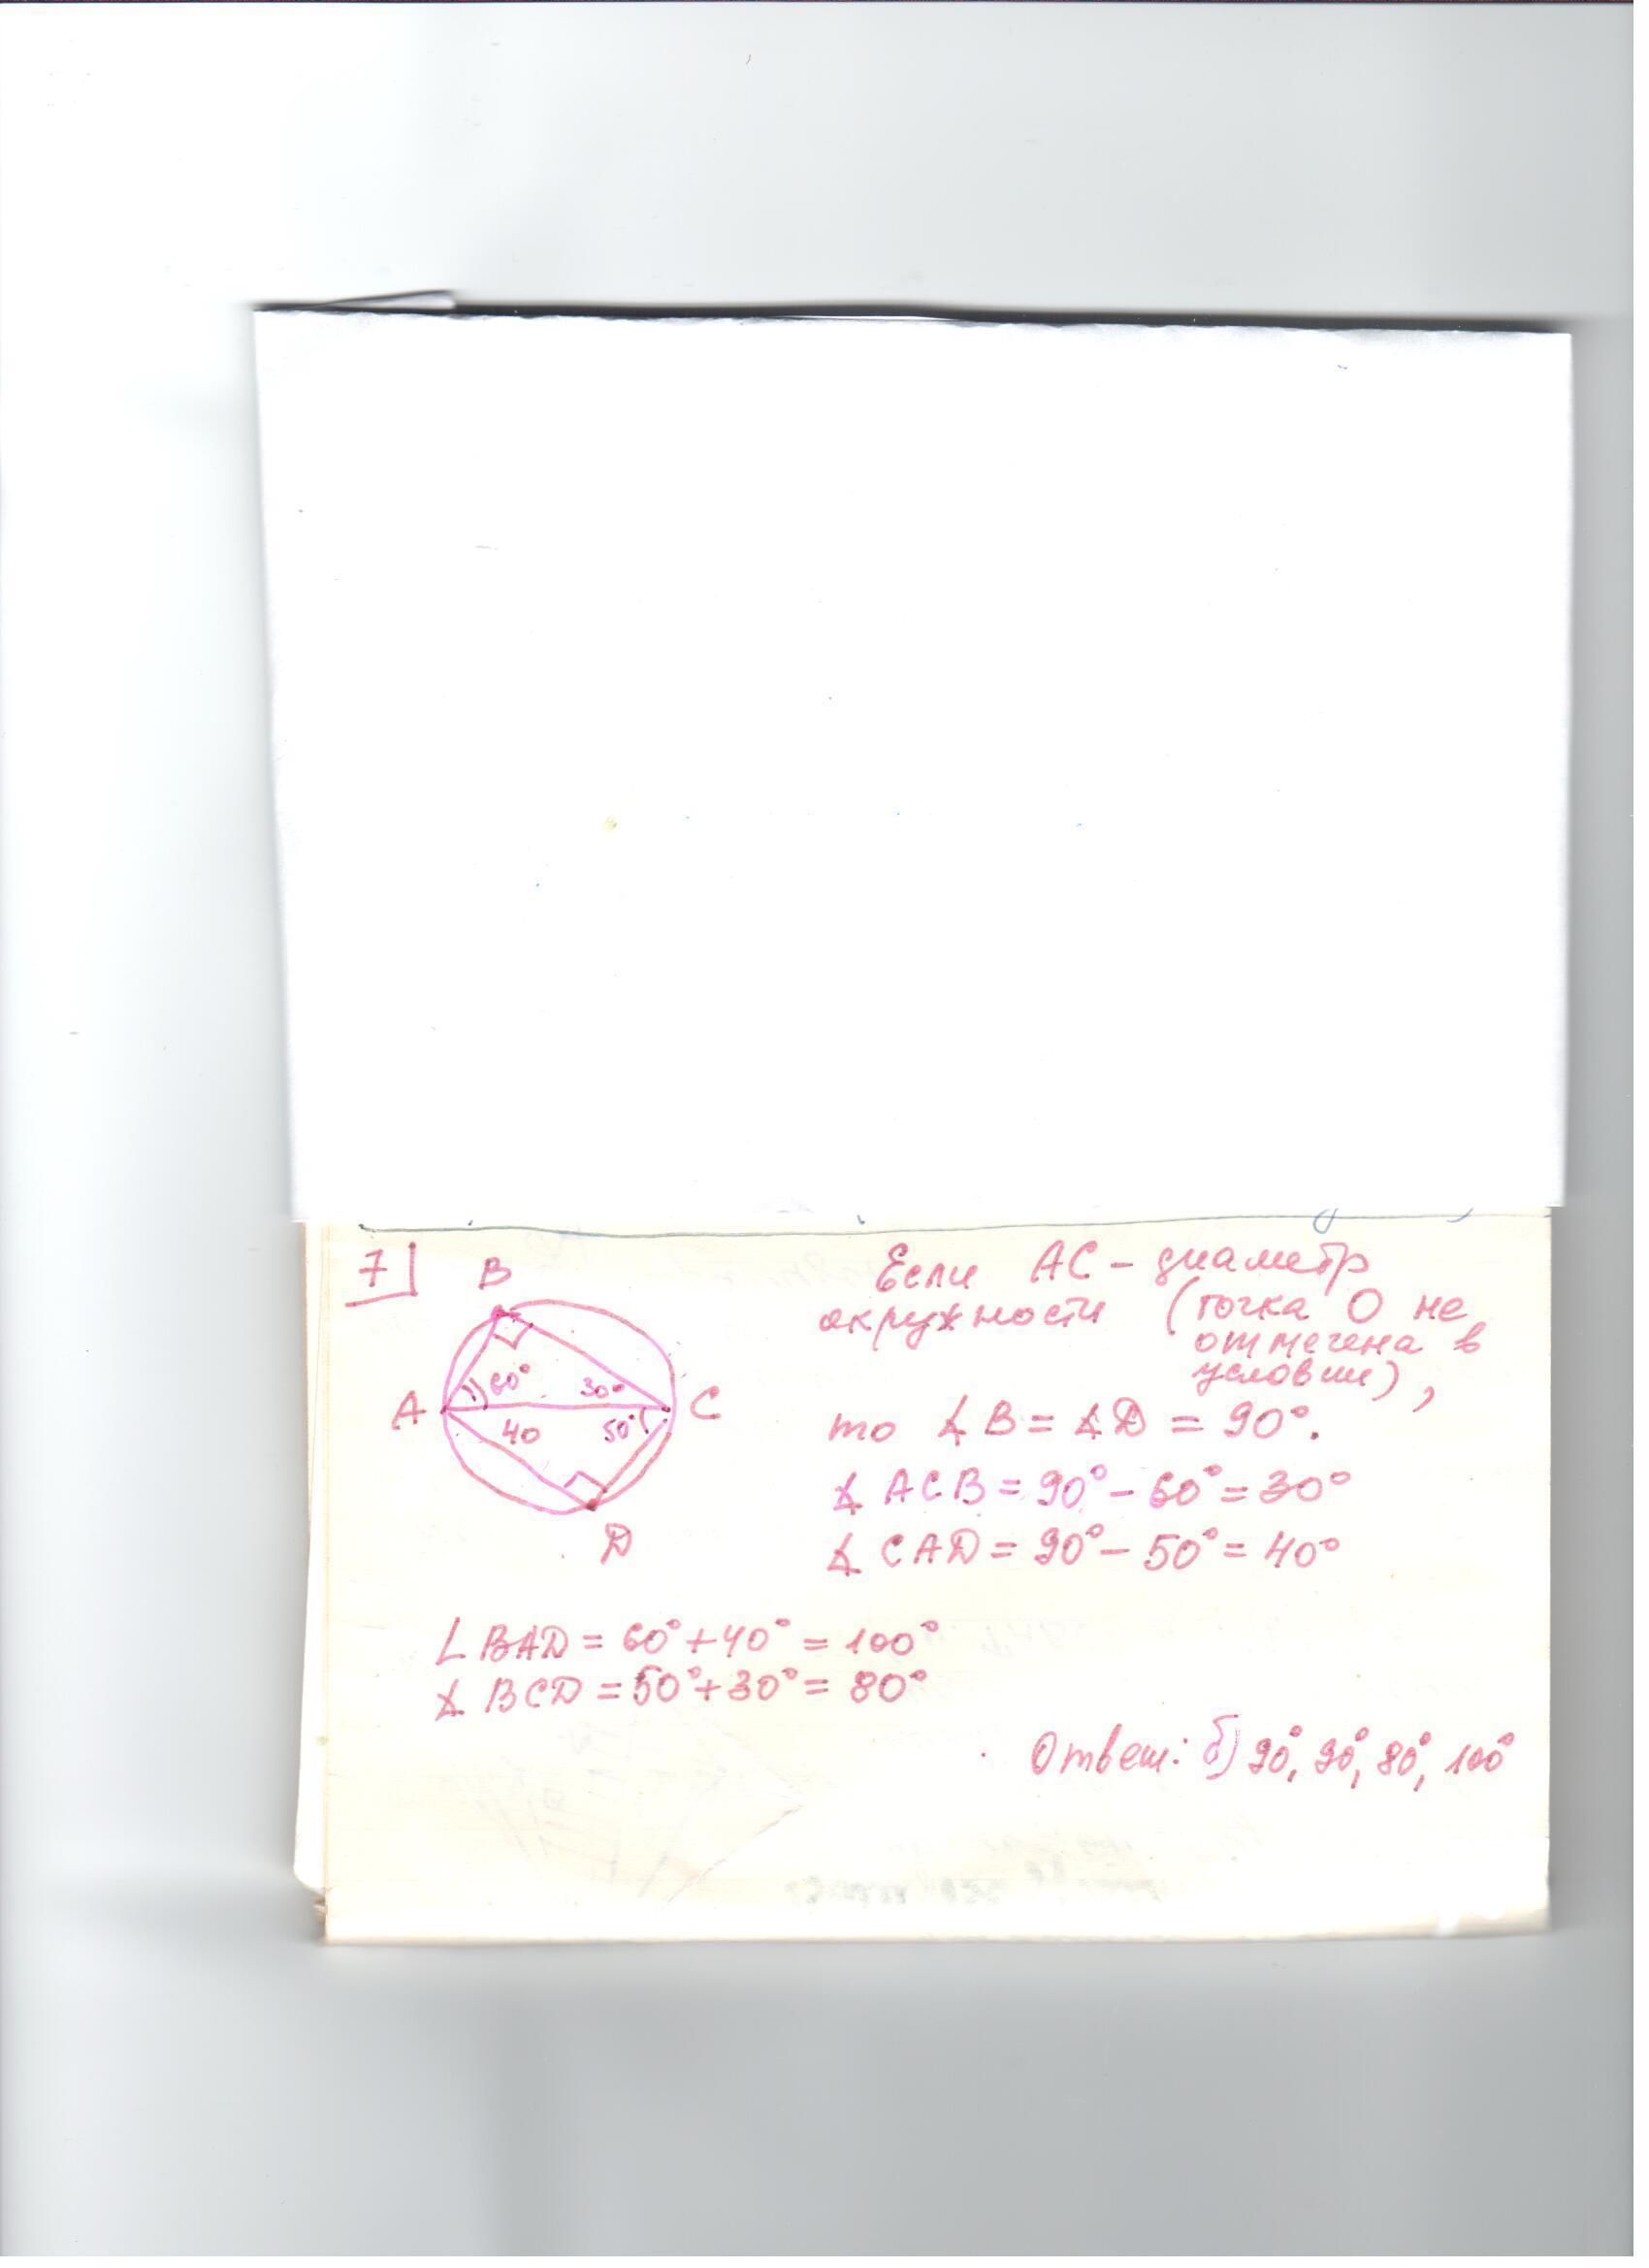 7
B
60°
30°
A
C
40
50°
D
Если AC - диаметр
окружности (точка O не
отмечена в
условии),
то ∡ B = ∡ D = 90°.
∡ ACB = 90° - 60° = 30°
∡ CAD = 90° - 50° = 40°
∠ BAD = 60° + 40° = 100°
∡ BCD = 50° + 30° = 80°
Ответ: б) 90°, 90°, 80°, 100°